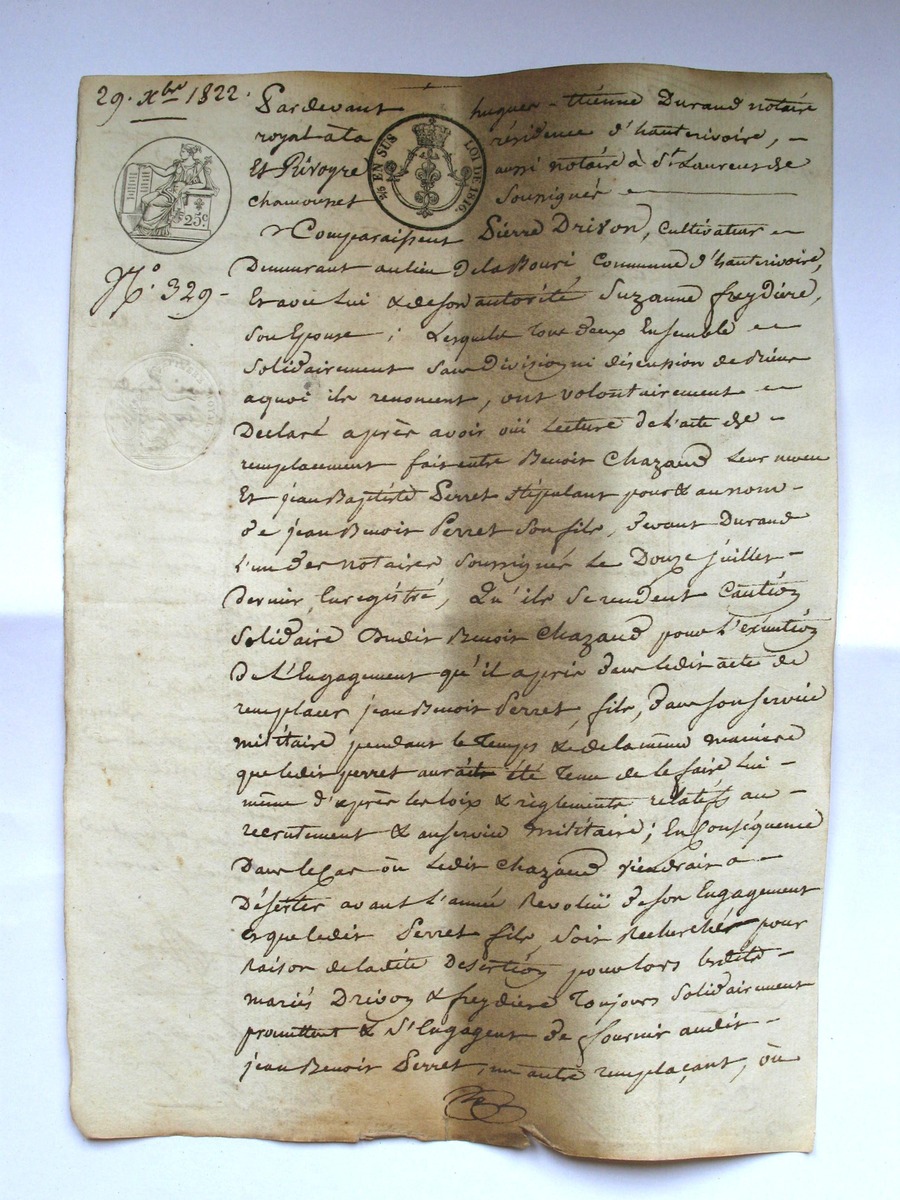 29. Xbre 1822.
Pardevant hugues-Etienne Durand notaire
royal à la résidence d'hauterivoire, –
Et Rivoyre aussi notaire à St Laurent de
chamousset Soussignés
5/5 EN SUS LOI DE 1816.
25c
Comparaissent Pierre Drivon, Cultivateur
Demeurant au lieu De la Bouri, Commune d'hauterivoire,
N° 329 –
Et avec Lui & de son autorité Suzanne freydiere,
Son Epouse ; Lesquels Tous deux Ensemble
Solidairement Sans Division ni discussion de biens
aquoi ils renoncent, ont volontairement
Declaré après avoir oüi Lecture De l'acte de –
remplacement fait entre Benoit Chazaud Leur neveu
Et jean Baptiste Perret Stipulant pour & au nom –
De jean Benoit Perret Son fils, devant Durand
L'un des notaires Soussignés Le Douze juillet –
Dernier, Enregistré, Qu'ils Se rendent Caution
Solidaire Dudit Benoit Chazaud pour L'exécution
De L'Engagement qu'il a pris dans Ledit acte de
remplacer jean Benoit Perret, fils, dans son service
militaire pendant le Temps & de la même manière
que ledit perret aurait été Tenu de le faire Lui –
même d'après les loix & règlements relatifs au –
recrutement & au service militaire; En Conséquence
Dans le Cas où Ledit Chazaud viendrait a –
Déserter avant L'année Revolüe de son Engagement
Et que ledit Perret fils, soit Recherché pour
Raison de la dite Desertion pour lors lesdits –
mariés Drivon & freydiere Toujours Solidairement
promettent & S'Engagent de fournir audit –
jean Benoit Perret, un autre remplaçant, où